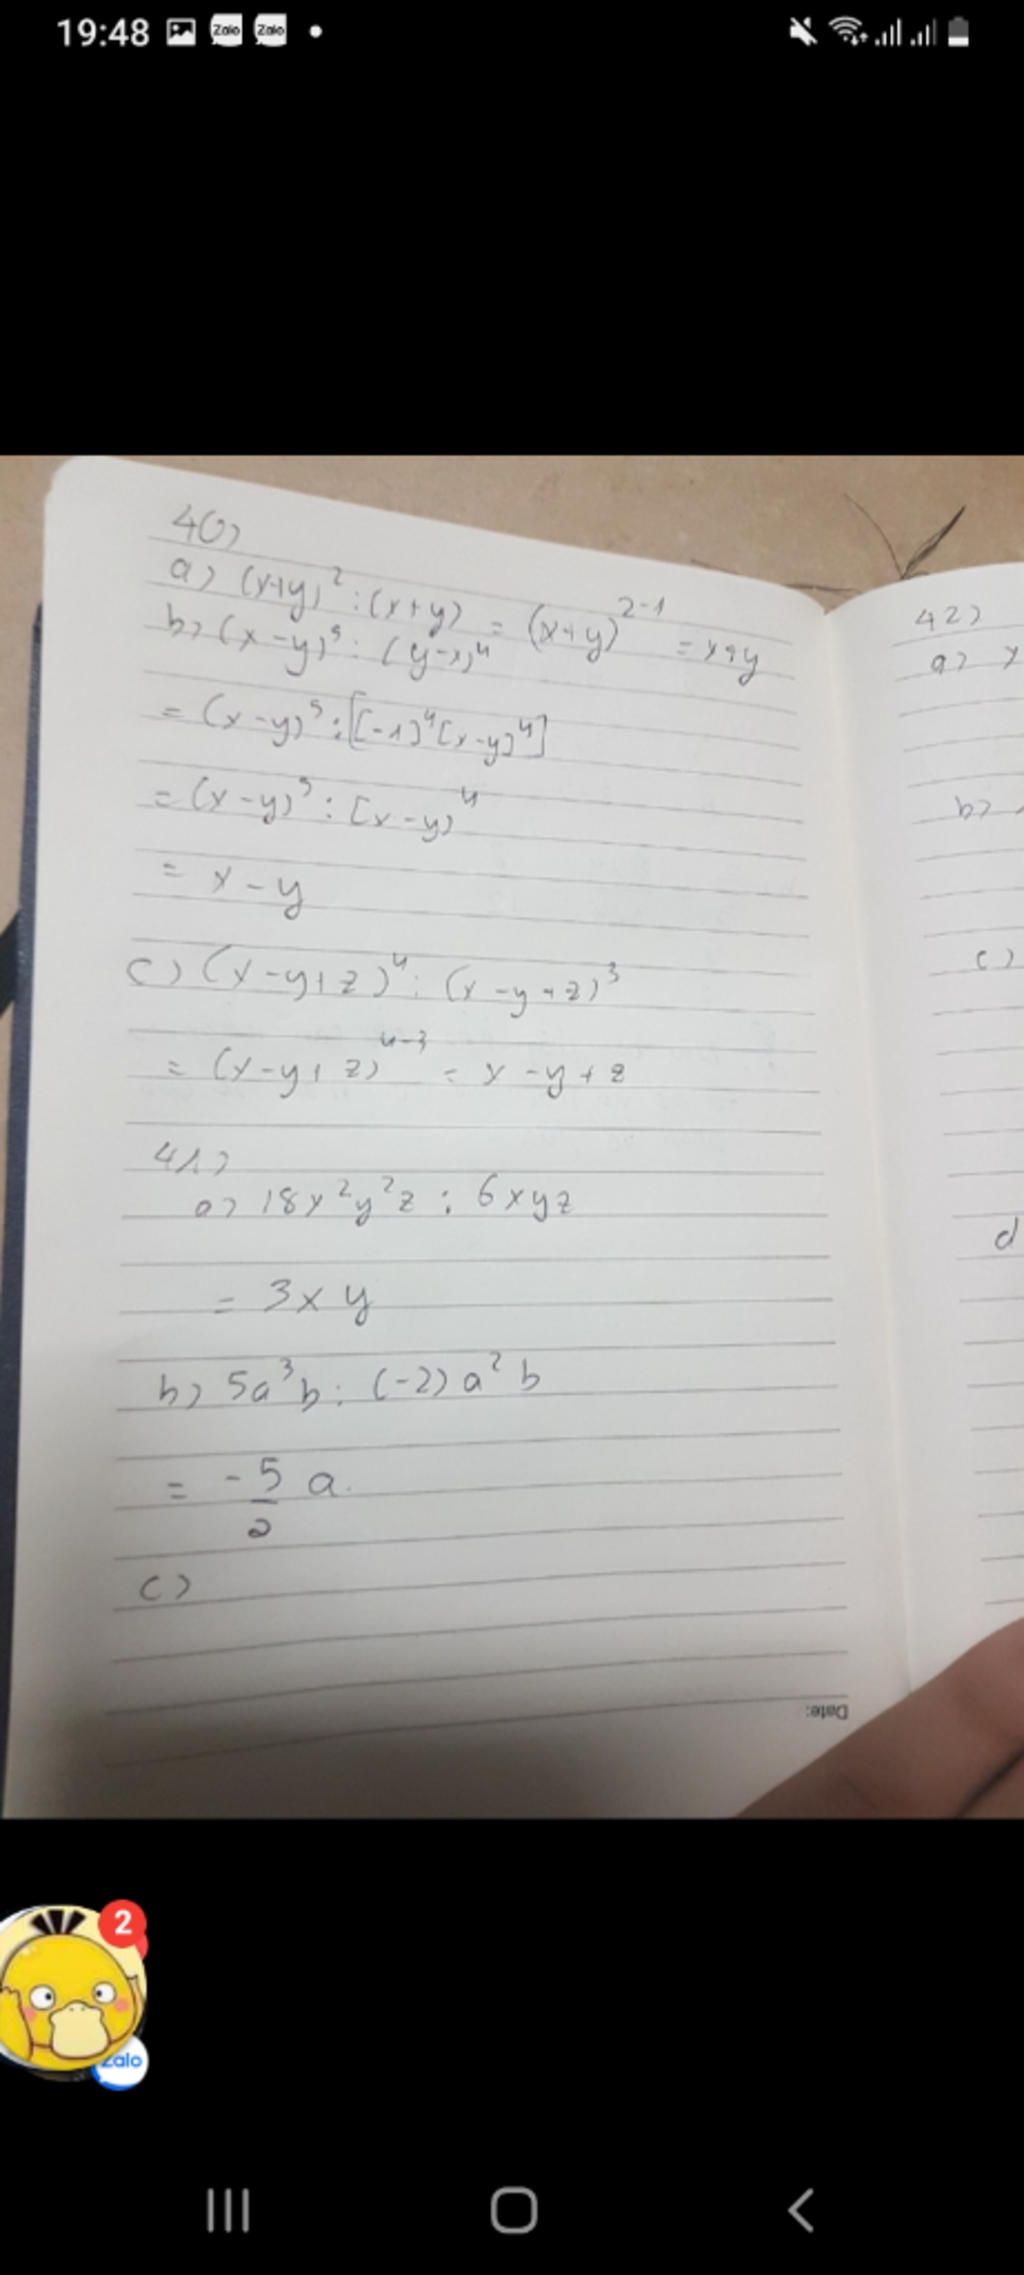 19:48 Zalo Zalo
40)
a) (x+y)² : (x+y) = (x+y)²⁻¹ = x+y
b) (x-y)⁵ : (y-x)⁴
= (x-y)⁵ : [[-1)⁴[x-y)⁴]
= (x-y)⁵ : [x-y)⁴
= x-y
c) (x-y+z)⁴ : (x-y+z)³
= (x-y+z)⁴⁻³ = x-y+z
41)
a) 18x²y²z : 6xyz
= 3xy
b) 5a³b : (-2)a²b
= -5/2 a.
c)
Date:
42)
a)
b)
c)
d
2
Zalo